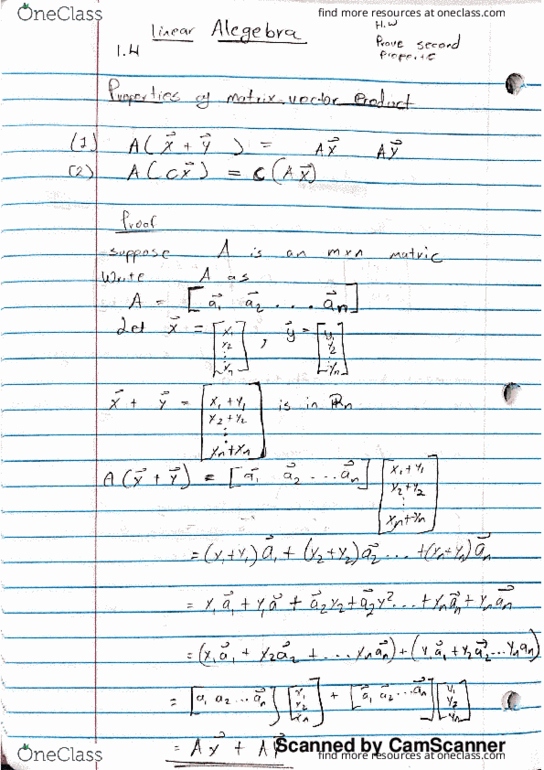 OneClass
find more resources at oneclass.com
Linear Alegebra
H.W
Prove second
1.4
Properties of matrix-vector Product
(1) A(x⃗ + y⃗ ) = Ax⃗ Ay⃗
(2) A(cx⃗) = c(Ax⃗)
Proof
suppose A is an mxn matric
Write A as
A = [a⃗₁ a⃗₂ ... a⃗n]
Let x⃗ = [x₁ x₂ ⋮ xn], y⃗ = [y₁ y₂ ⋮ yn]
x⃗ + y⃗ = [x₁+y₁ x₂+y₂ ⋮ xn+xn] is in Rn
A(x⃗ + y⃗) = [a⃗₁ a⃗₂ ... a⃗n] [x₁+y₁ x₂+y₂ ⋮ xn+yn]
= (x₁+y₁)a⃗₁ + (x₂+y₂)a⃗₂ ... +(xn+yn)a⃗n
= x₁a⃗₁ + y₁a⃗ + a⃗₂x₂+a⃗₂y²... + xna⃗n + yna⃗n
= (x₁a⃗₁ + x₂a⃗₂ + ... xna⃗n)+(y₁a⃗₁+y₂a⃗₂...ynan)
= [a₁ a₂ ... a⃗n] [x₁ x₂ xn] + [a⃗₁ a⃗₂ ... a⃗n] [y₁ y₂ yn]
= Ax⃗ + A
Scanned by CamScanner
OneClass
find more resources at oneclass.com